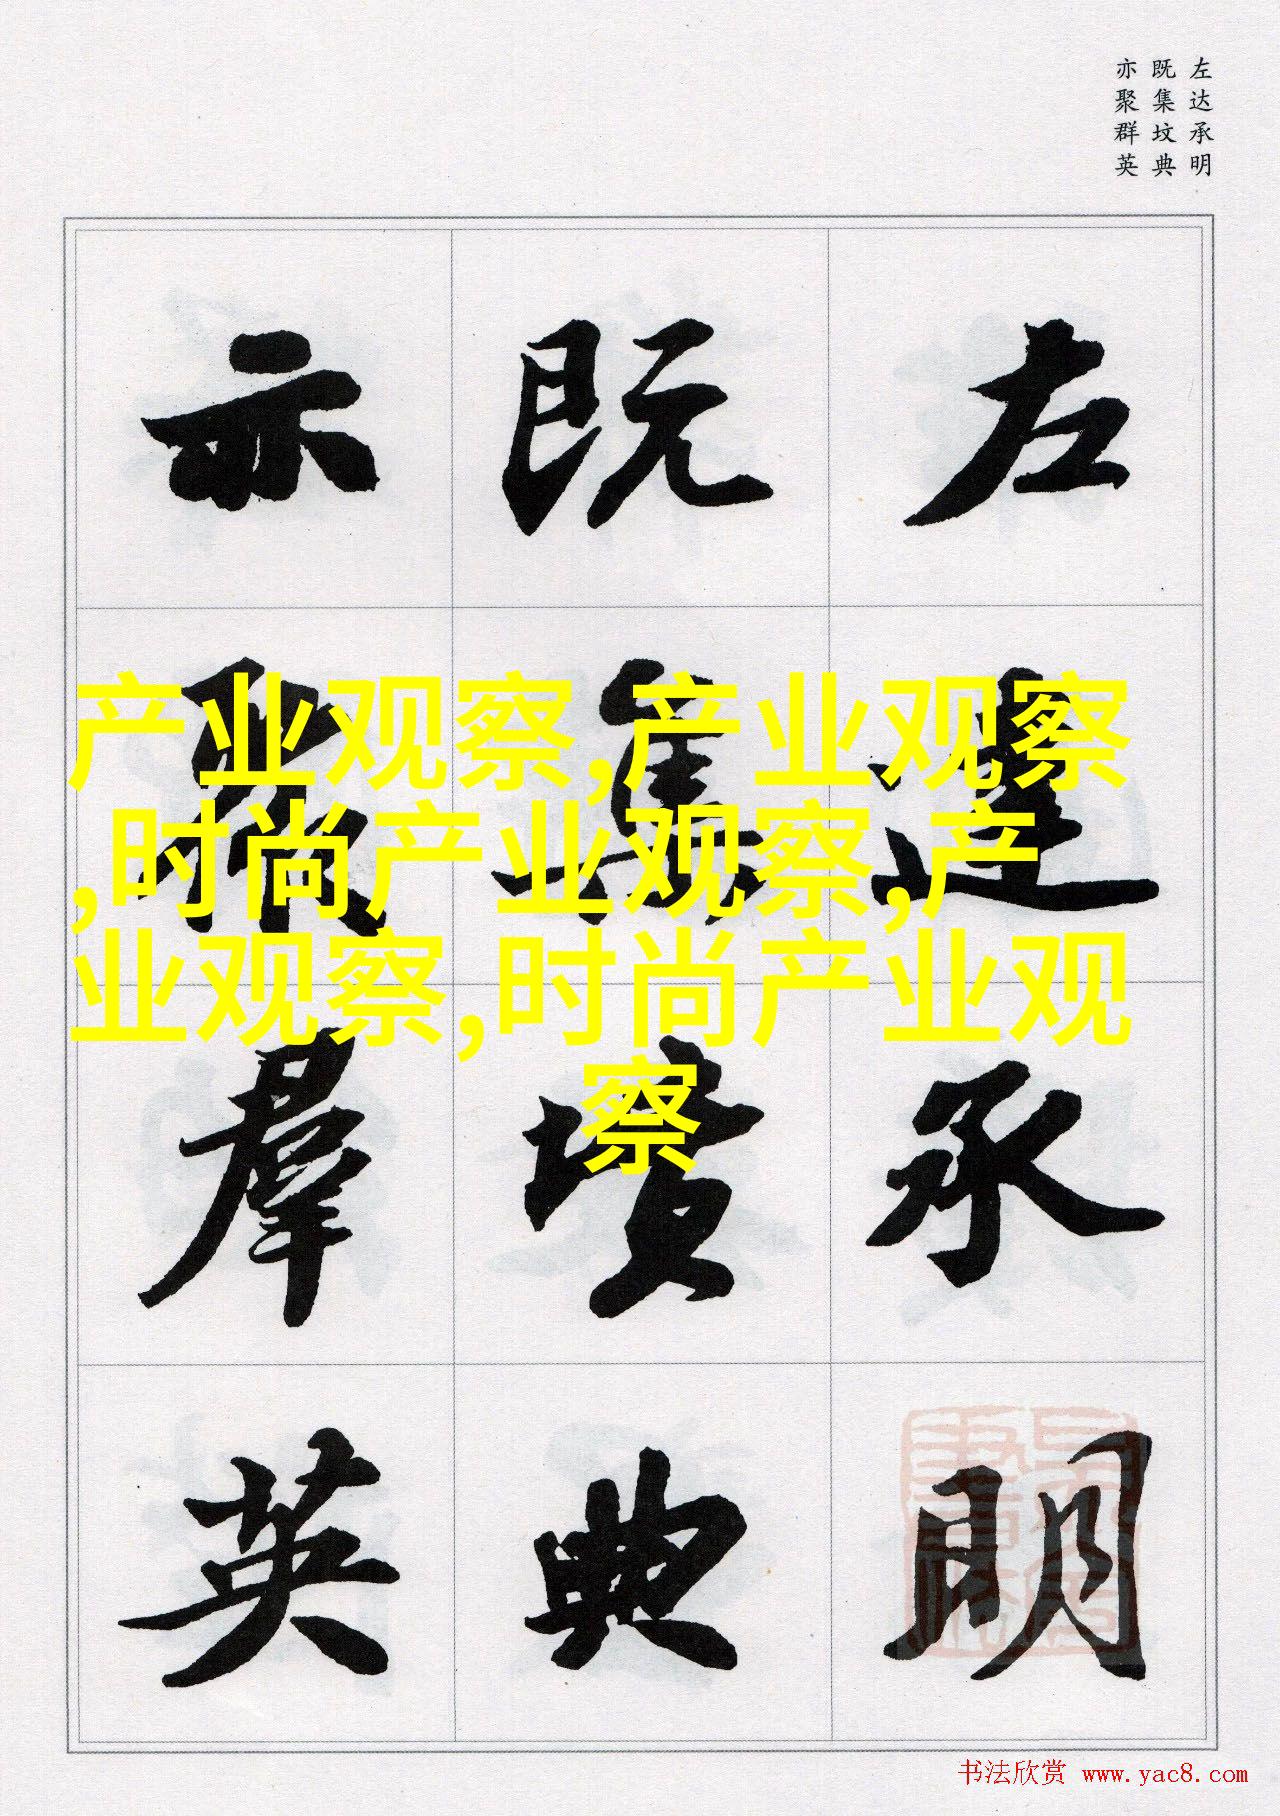 左达承明
既集坟典
亦聚群英
左達承明
既集墳典
亦聚羣英
产业观察,产业观察
,时尚产业观察,产
业观察,时尚产业观
察
书法欣赏 www.yac8.com